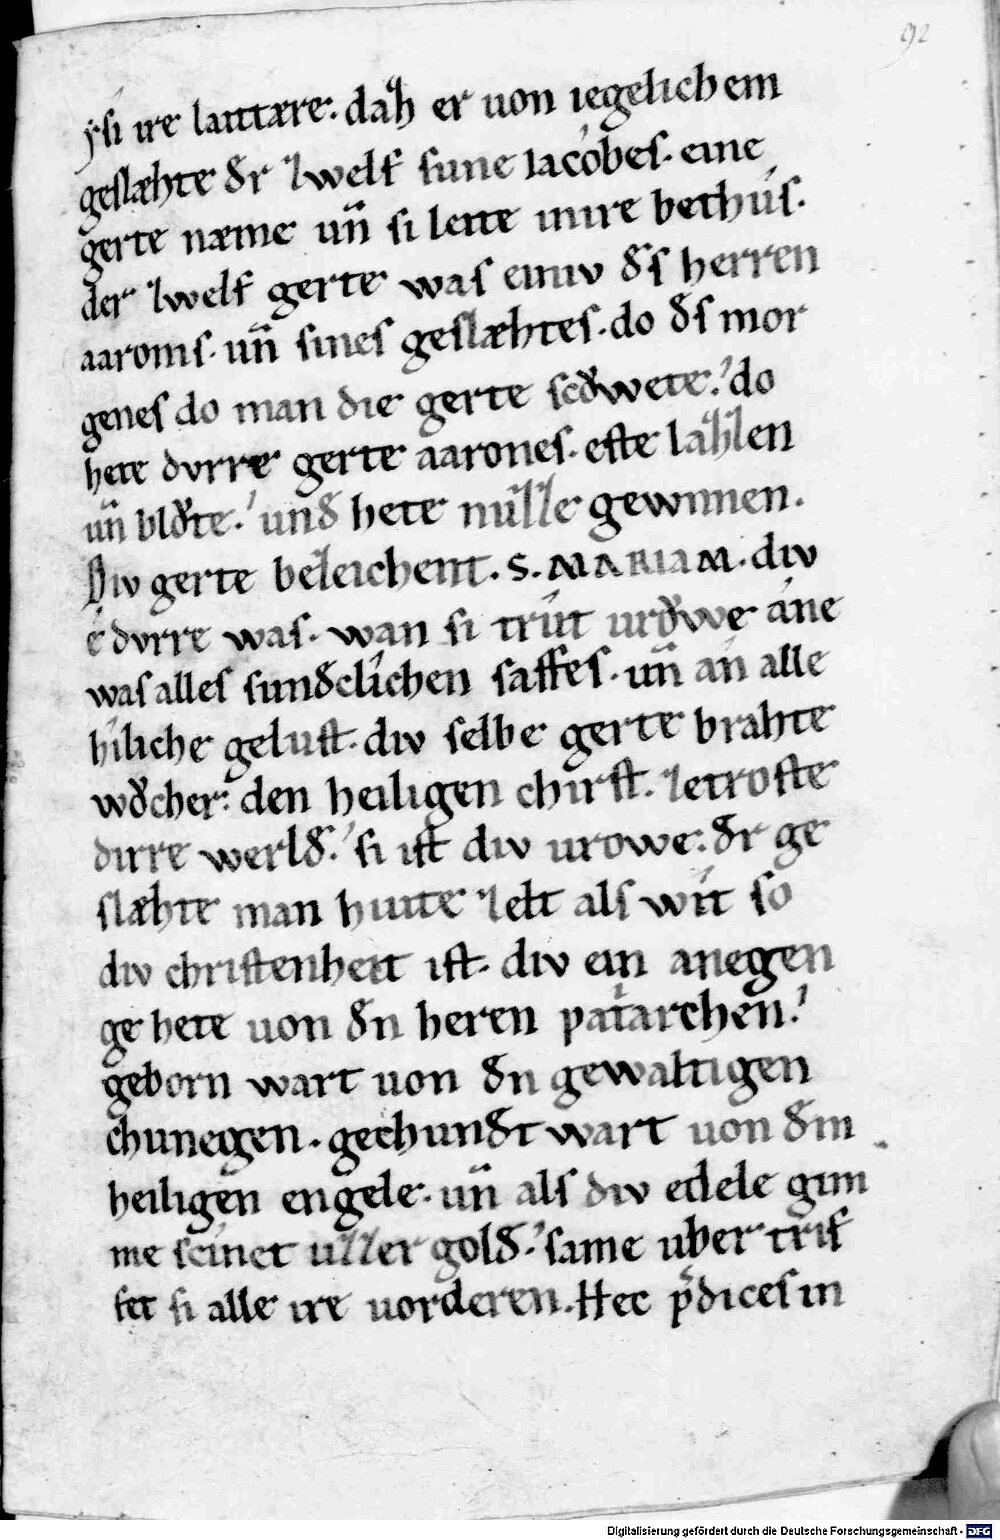 92
ysi ire laittære. daꜩ er uon iegelichem
geslæhte dͤr ꜩwelf sune iacobes. eine
gerte næme uñ si leite inure bethús.
der ꜩwelf gerte was einiv dͤs herren
aaronis. uñ sines geslæhtes. do dͤs mor
genes do man die gerte scoͮwete. do
hete dvrre gerte aarones. este laꜩꜩen
uñ bloͮte. und hete nuꜩꜩe gewnnen.
Div gerte beꜩeichent. S. MARIAM. div
é dvrre was. wan si trút uroͮwe áne
was alles sundeclíchen saffes. uñ án alle
híliche gelust. div selbe gerte brahte
woͮcher. den heiligen chirst. ꜩetroste
dirre werlde. si ist div urowe. dͤr ge
slæhte man hiute ꜩelt als wít so
div christenheit ist. div ein anegen
ge hete uon dͤn heren patͥarchen.
geborn wart uon dͤn gewaltigen
chunegen. gechundͤt wart uon dͤm
heiligen engele. uñ als div edele gim
me scinet uꜩꜩer golde. same uber trif
fet si alle ire uorderen. Hec p̄dices in
Digitalisierung gefördert durch die Deutsche Forschungsgemeinschaft - DFG